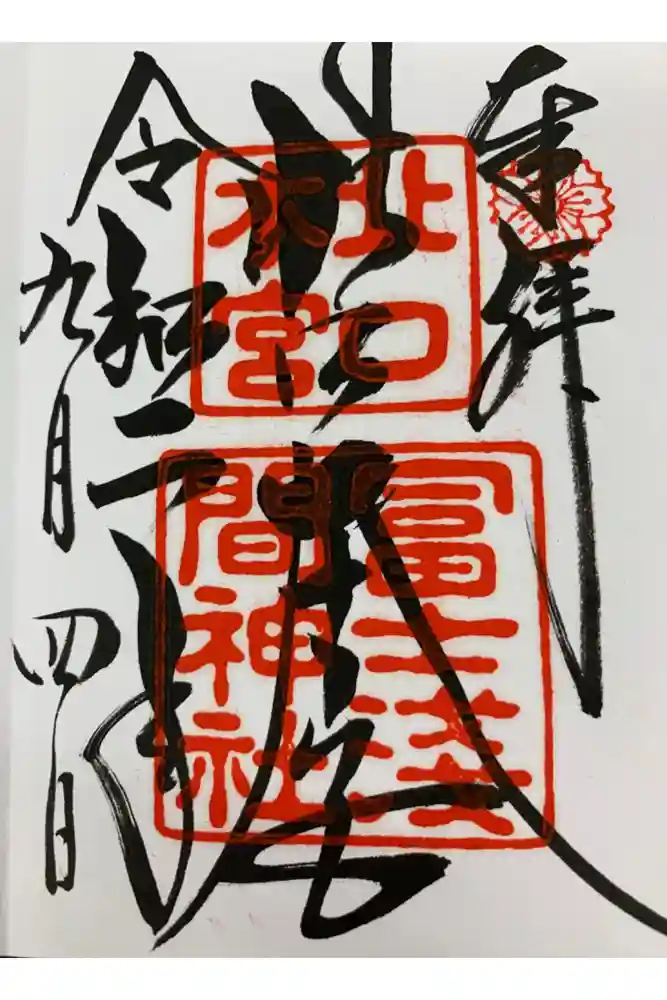 奉拝
北口
本宮
冨士浅
間神社
令和二年
九月四日